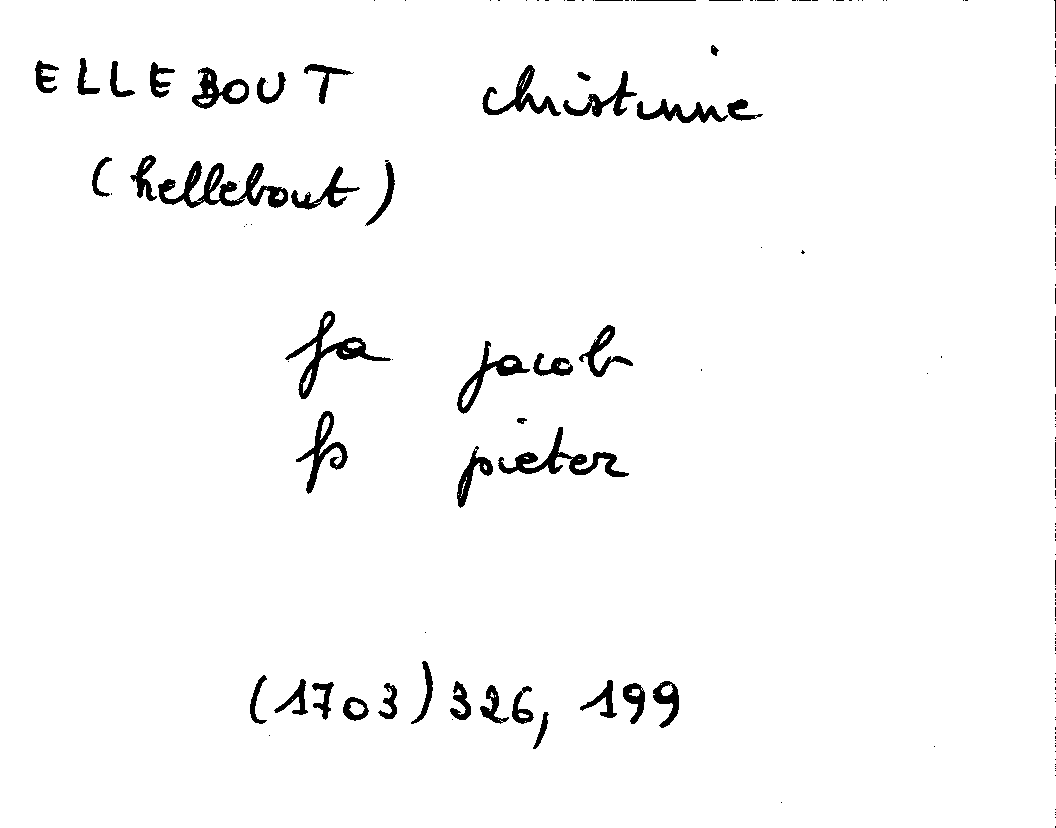 ELLEBOUT christinne
(hellebout)
fa jacob
fs pieter
(1703) 326, 199